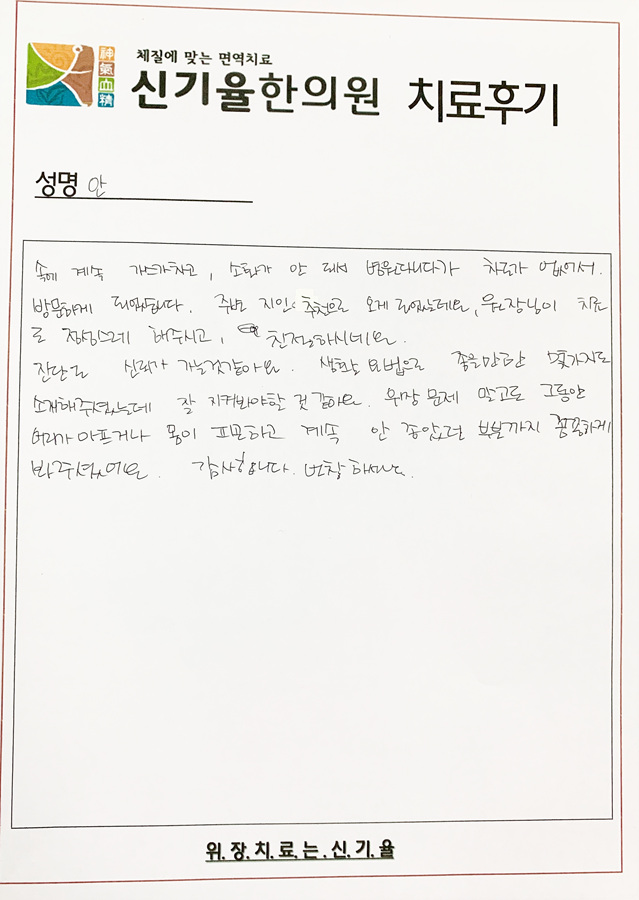 神氣血精
체질에 맞는 면역치료
신기율한의원 치료후기
성명 안
속에 계속 가스가차고, 소화가 안 돼서 병원다니다가 차도가 없어서.
방문하게 되었습니다. 주변 지인 추천으로 오게 되었는데요, 원장님이 치료
도 정성스레 해주시고, 친절하시네요.
진단도 신뢰가 가는것같아요. 생활 요법으로 좋을만한 몇가지도
소개해주셨는데 잘 지켜봐야할 것 같아요. 위장 문제 말고도 그동안
머리가 아프거나 몸이 피곤하고 계속 안 좋았던 부분까지 꼼꼼하게
봐주셨어요. 감사합니다. 번창하세요.
위.장.치.료.는.신.기.율